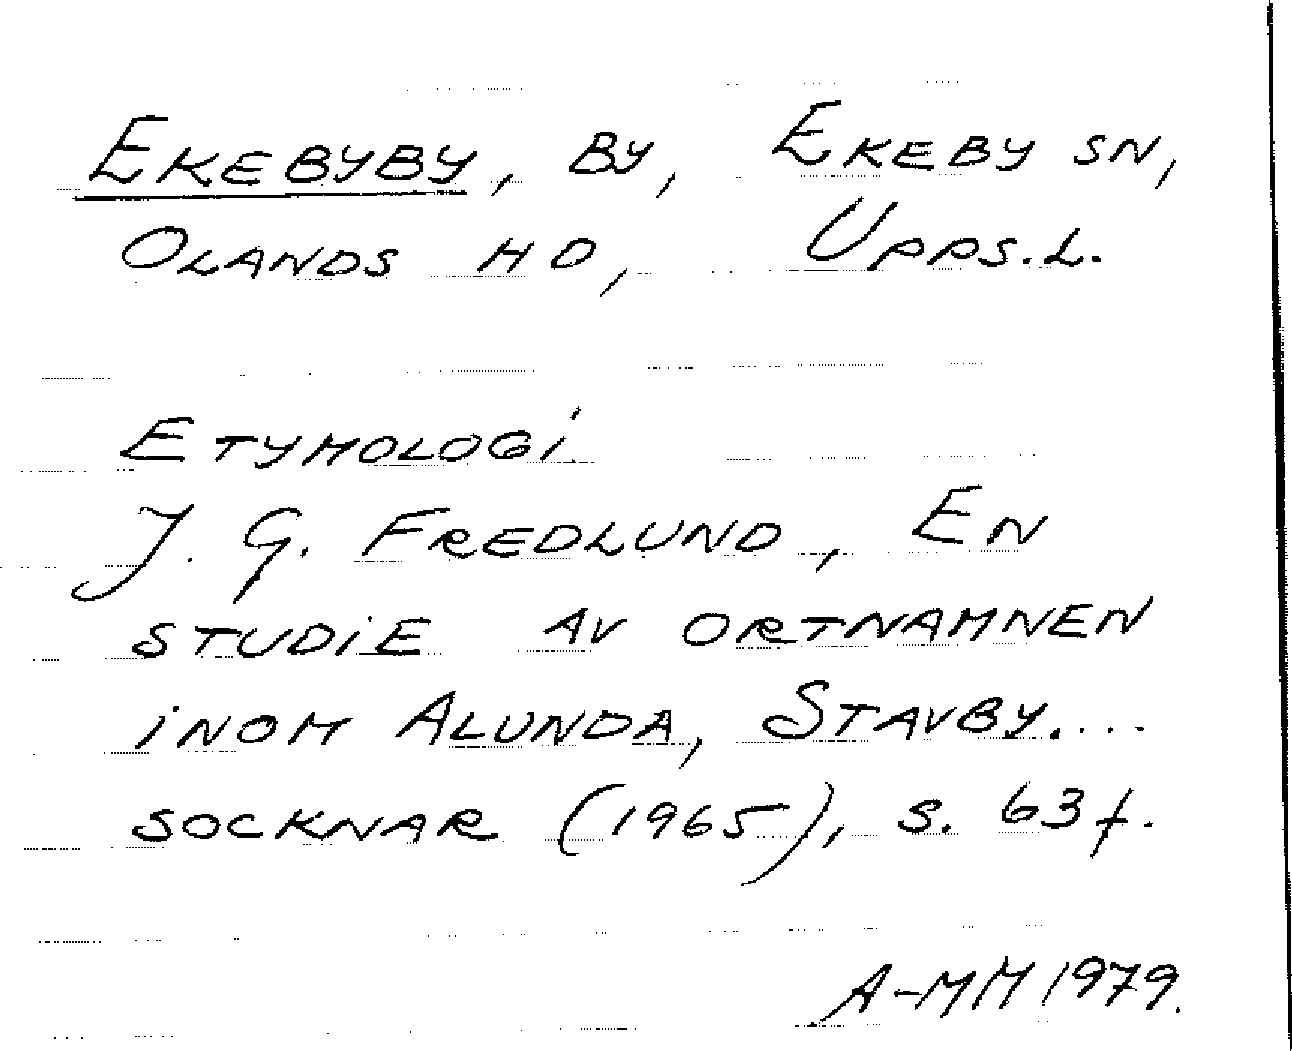 EKEBYBY, BY, EKEBY SN,
OLANDS HD, UPPS.L.
ETYMOLOGI
J. G. FREDLUND, EN
STUDIE AV ORTNAMNEN
INOM ALUNDA, STAVBY....
SOCKNAR (1965), S. 63 f.
A-MM 1979.